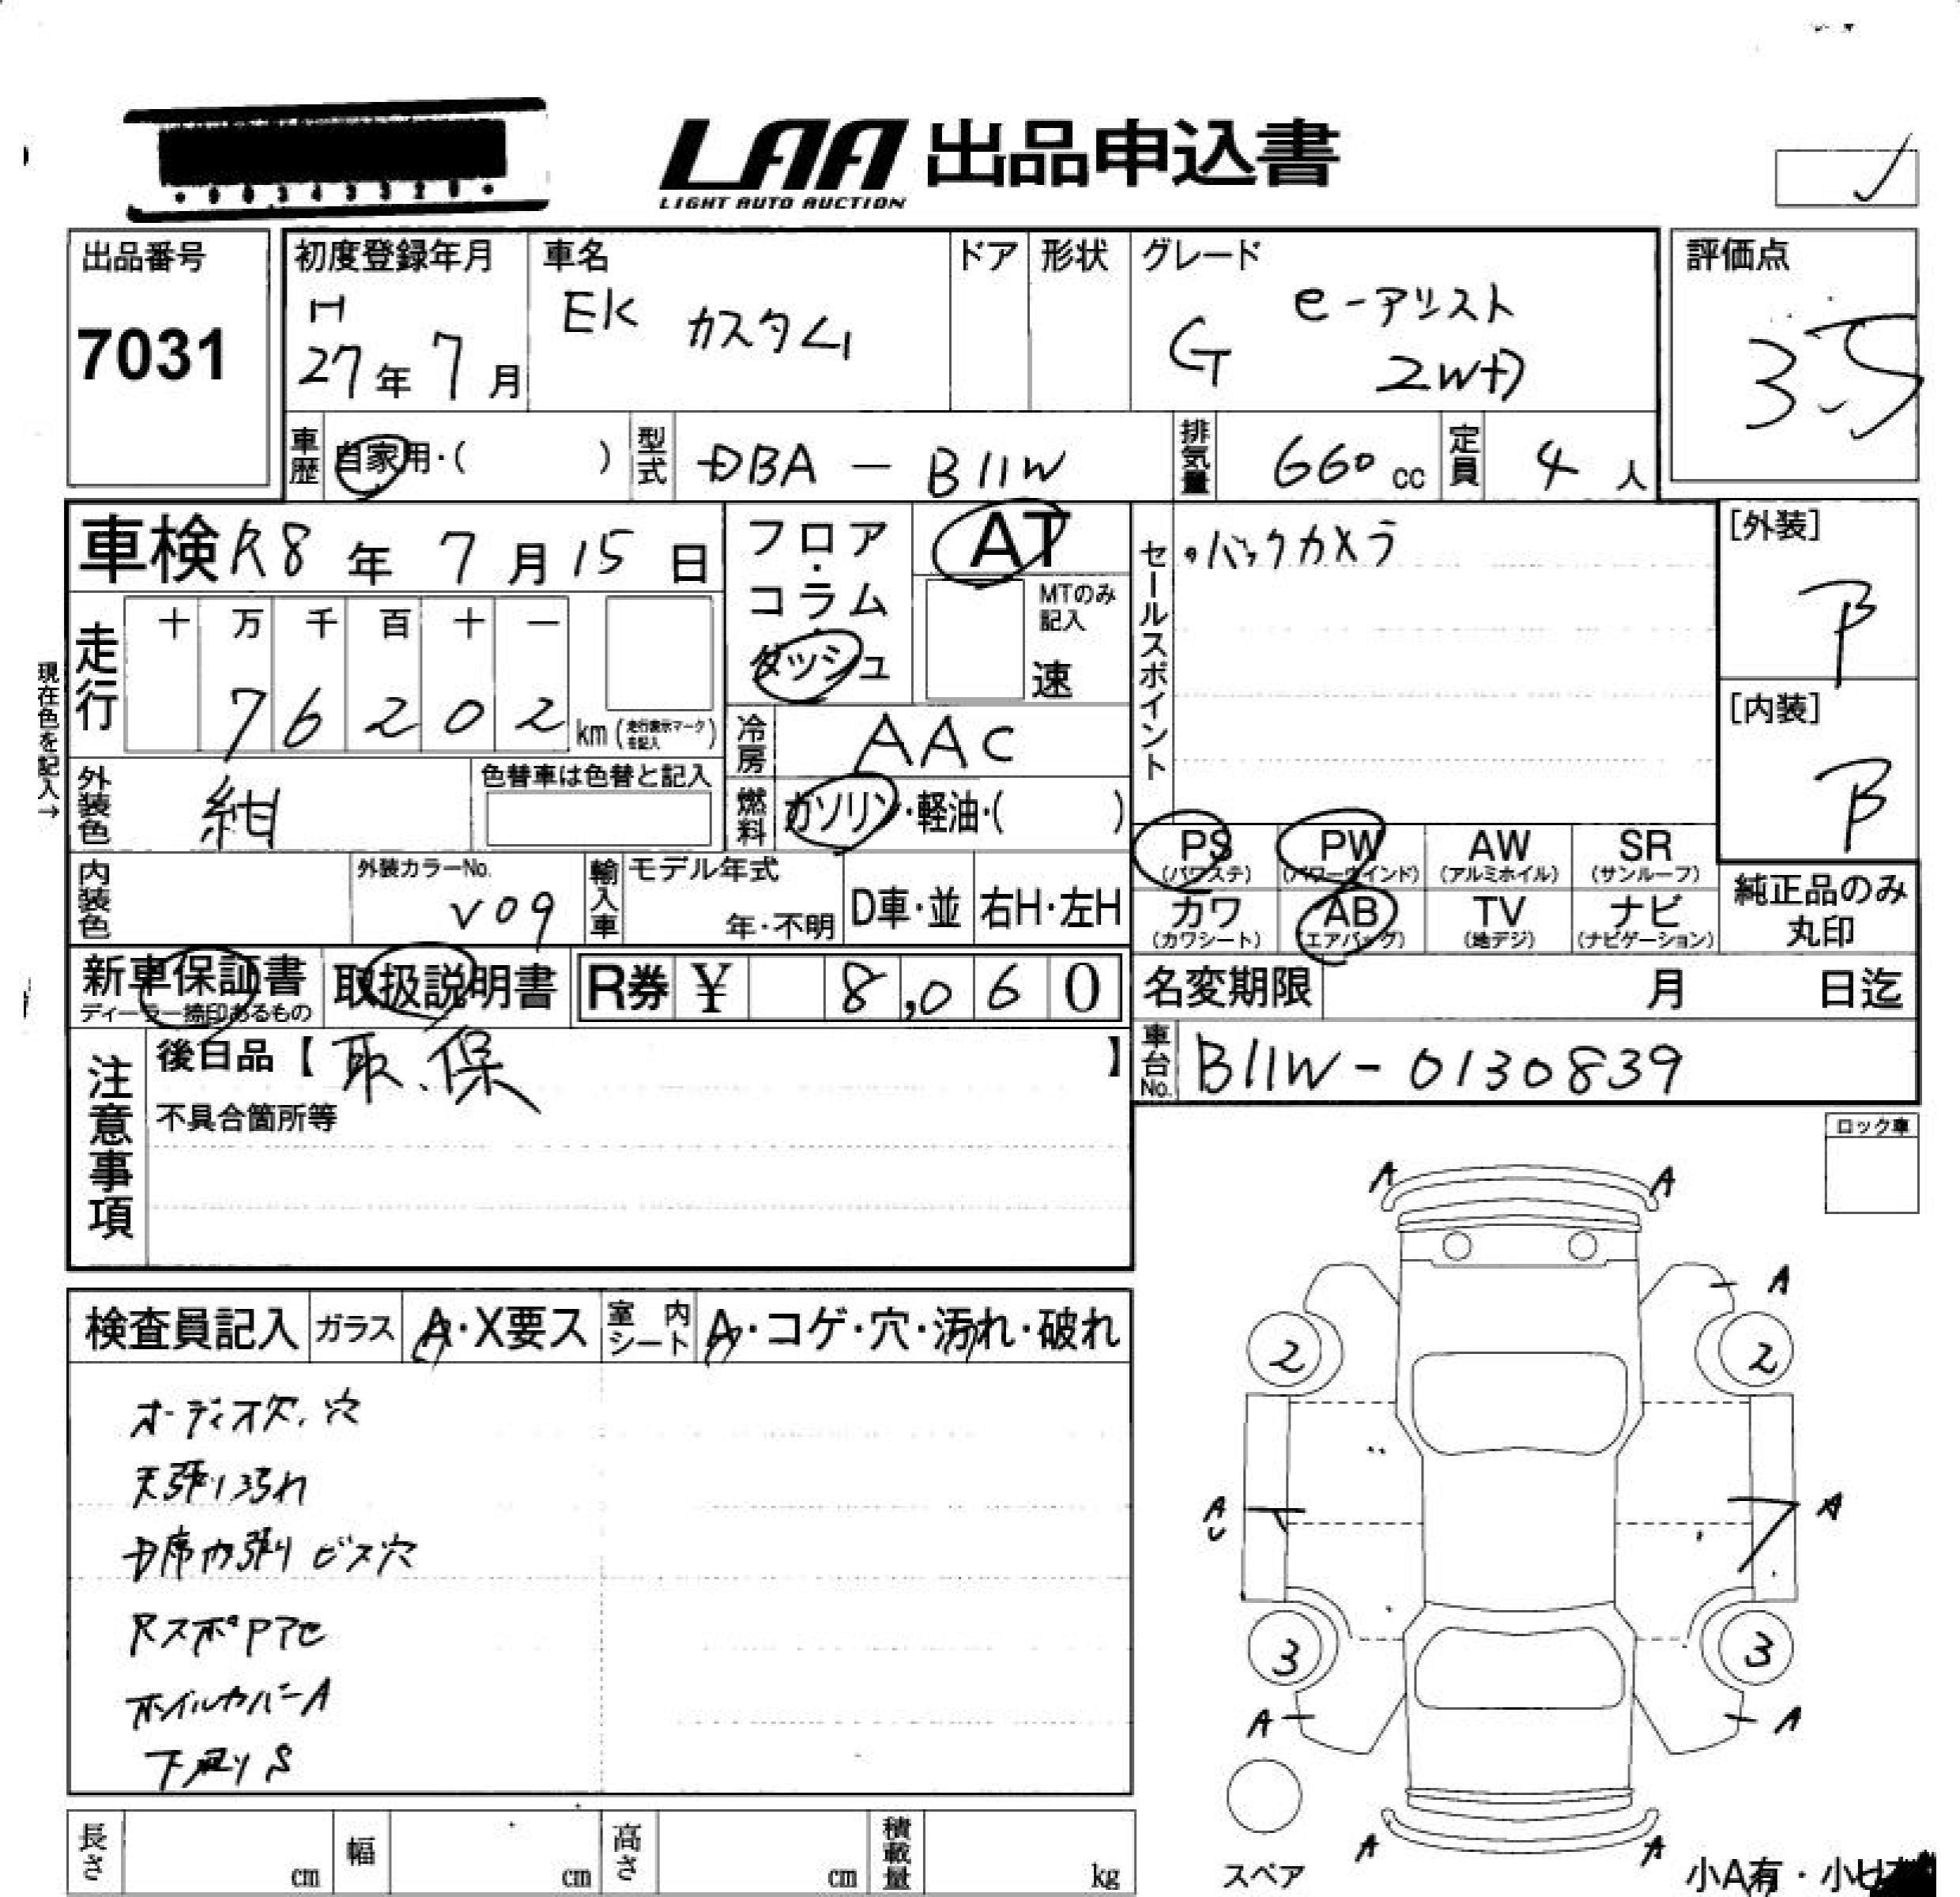 LAA 出品申込書
LIGHT AUTO AUCTION
出品番号
7031
初度登録年月
H
27年 7月
車名
EK カスタム
ドア
形状
グレード
G e-アシスト
2WD
評価点
3.5
車歴 自家用・( )
型式 DBA - B11W
排気量 660 cc
定員 4 人
車検 R8 年 7 月 15 日
フロア・コラム
ダッシュ
AT
MTのみ記入
速
セールスポイント
・バックカメラ
[外装]
B
[内装]
B
現在色を記入→
走行
十 万 千 百 十 一
7 6 2 0 2 km (走行表示マークを記入)
冷房 AAC
外装色 紺
色替車は色替と記入
燃料 ガソリン・軽油・( )
PS (パワステ)
PW (パワーウインド)
AW (アルミホイル)
SR (サンルーフ)
カワ (カワシート)
AB (エアバッグ)
TV (地デジ)
ナビ (ナビゲーション)
純正品のみ丸印
内装色
外装カラーNo.
V09
輸入車 モデル年式
年・不明
D車・並
右H・左H
新車保証書
ディーラー捺印あるもの
取扱説明書
R券 ¥ 8,060
名変期限 月 日迄
注意事項
後日品【 取.保 】
不具合箇所等
車台No. B11W - 0130839
ロック車
検査員記入
ガラス A・X要ス
室内シート A・コゲ・穴・汚れ・破れ
オーディオ欠.穴
天張り汚れ
D席内張りビス穴
RスポPアセ
ホイルカバーA
下廻りS
A A
A
2 2
A
A
3 3
A A
A A
スペア
小A有・小U
長さ cm
幅 cm
高さ cm
積載量 kg